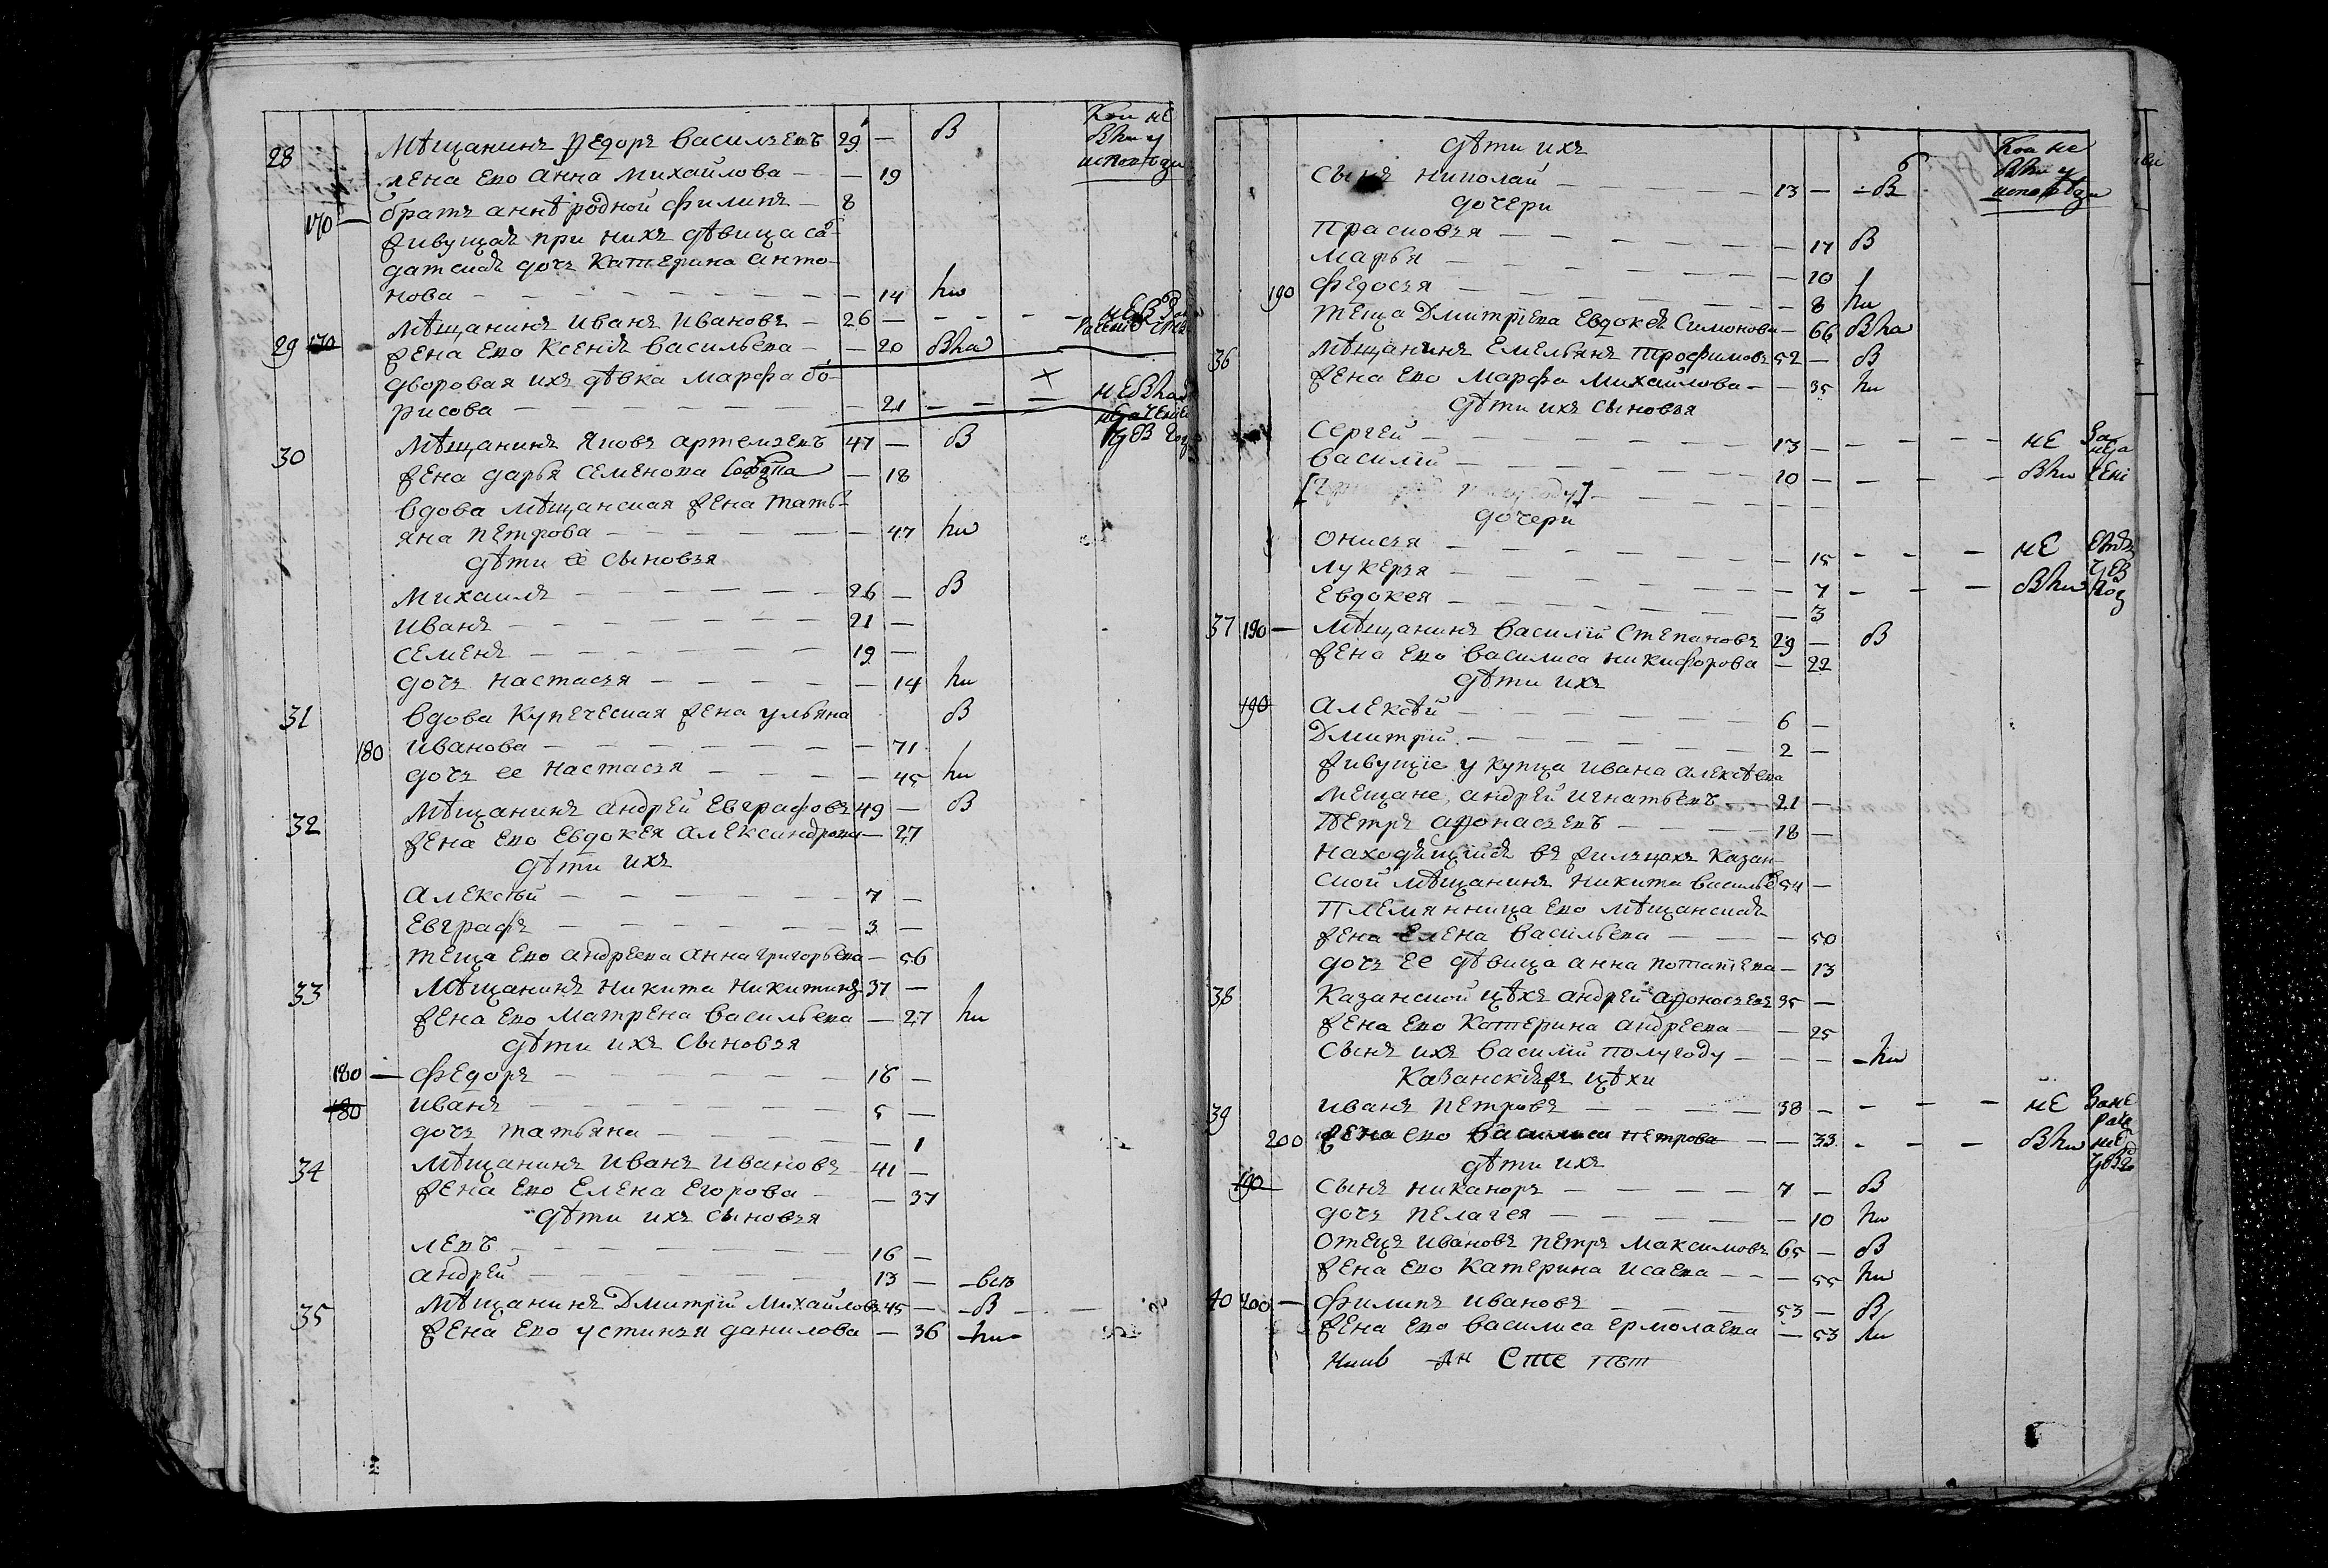 Кои не
28 Мѣщанинъ Федоръ Васильевъ 29 — В
жена ево Анна Михайлова — — 19
170 — братъ аннѣ родной Филипъ — 8
живущая при нихъ дѣвица сол-
датская дочь Катерина Анто-
нова — — 14
Мѣщанинъ Иванъ Ивановъ — 26 —
29 170 жена ево Ксенія Васильева — — 20
дворовая ихъ дѣвка Марфа Бо-
рисова — — 21 — — —
30 Мѣщанинъ Яковъ Артемьевъ 47 — В
жена дарья Семенова — 18
вдова мѣщанская жена Тать-
яна Петрова — — 47
дѣти ее сыновья
Михаилъ — 26 — В
Иванъ — 21 —
Семенъ — 19 —
дочь Настасья — — 14
31 вдова купеческая жена Ульяна В
180 Иванова — — 71
дочь ее Настасья — — 45
32 Мѣщанинъ Андрей Евграфовъ 49 — В
жена ево Евдокея Александрова — 27
дѣти ихъ
Алексѣй — 7 —
Евграфъ — 3 —
теща ево Андреева Анна Григорьева — 56
33 Мѣщанинъ Никита Никитинъ 37 —
жена ево Матрена Васильева — 27
дѣти ихъ сыновья
180 — Федоръ — 16 —
180 Иванъ — 5 —
дочь Татьяна — — 1
34 Мѣщанинъ Иванъ Ивановъ 41 —
жена ево Елена Егорова — — 37
дѣти ихъ сыновья
Левъ — 16 —
Андрей — 13 —
35 Мѣщанинъ Дмитрій Михайловъ 45 — В
жена ево Устинья Данилова — 36
дѣти ихъ
Кои не
сынъ Николай — 13 — В
дочери
Прасковья — — 17 В
Марья — — 10
190 Федосья — — 8
теща Дмитріева Евдокея Симонова — 66
36 Мѣщанинъ Емельянъ Трофимовъ 52 — В
жена ево Марфа Михайлова — — 35
дѣти ихъ сыновья
Сергей — 13 — — — — не за
Василій — 10 — — — —
дочери
Онисья — — 15 — — — не
Лукерья — — 7 — — —
Евдокея — — 3
37 190 — Мѣщанинъ Василій Степановъ 29 — В
жена ево Василиса Никифорова — 22
дѣти ихъ
190 Алексѣй — 6 —
Дмитрій — 2 —
живущіе у купца Ивана Алексѣева
Мещане, Андрей Игнатьевъ — 21 —
Петръ Афонасьевъ — 18 —
находящійся въ жилицахъ Казан-
ской мѣщанинъ Никита Васильевъ 54 —
Племянница ево мѣщанская
жена Елена Васильева — — 50
дочь ее дѣвица Анна Потапіева — 13
38 Казанской цѣхъ Андрей Афонасьевъ 35 —
жена ево Катерина Андреева — — 25
сынъ ихъ Василій полугоду — — —
Казанскія жъ цѣхи
39 Иванъ Петровъ — 38 — — — — не
200 жена ево Василиса Петрова — — 33 — — —
дѣти ихъ
190 сынъ Никаноръ — 7 — В
дочь Пелагея — — 10
отецъ Ивановъ Петръ Максимовъ 65 — В
жена ево Катерина Исаева — — 55
40 200 — Филипъ Ивановъ — 53 — В
жена ево Василиса Ермолаева — 53